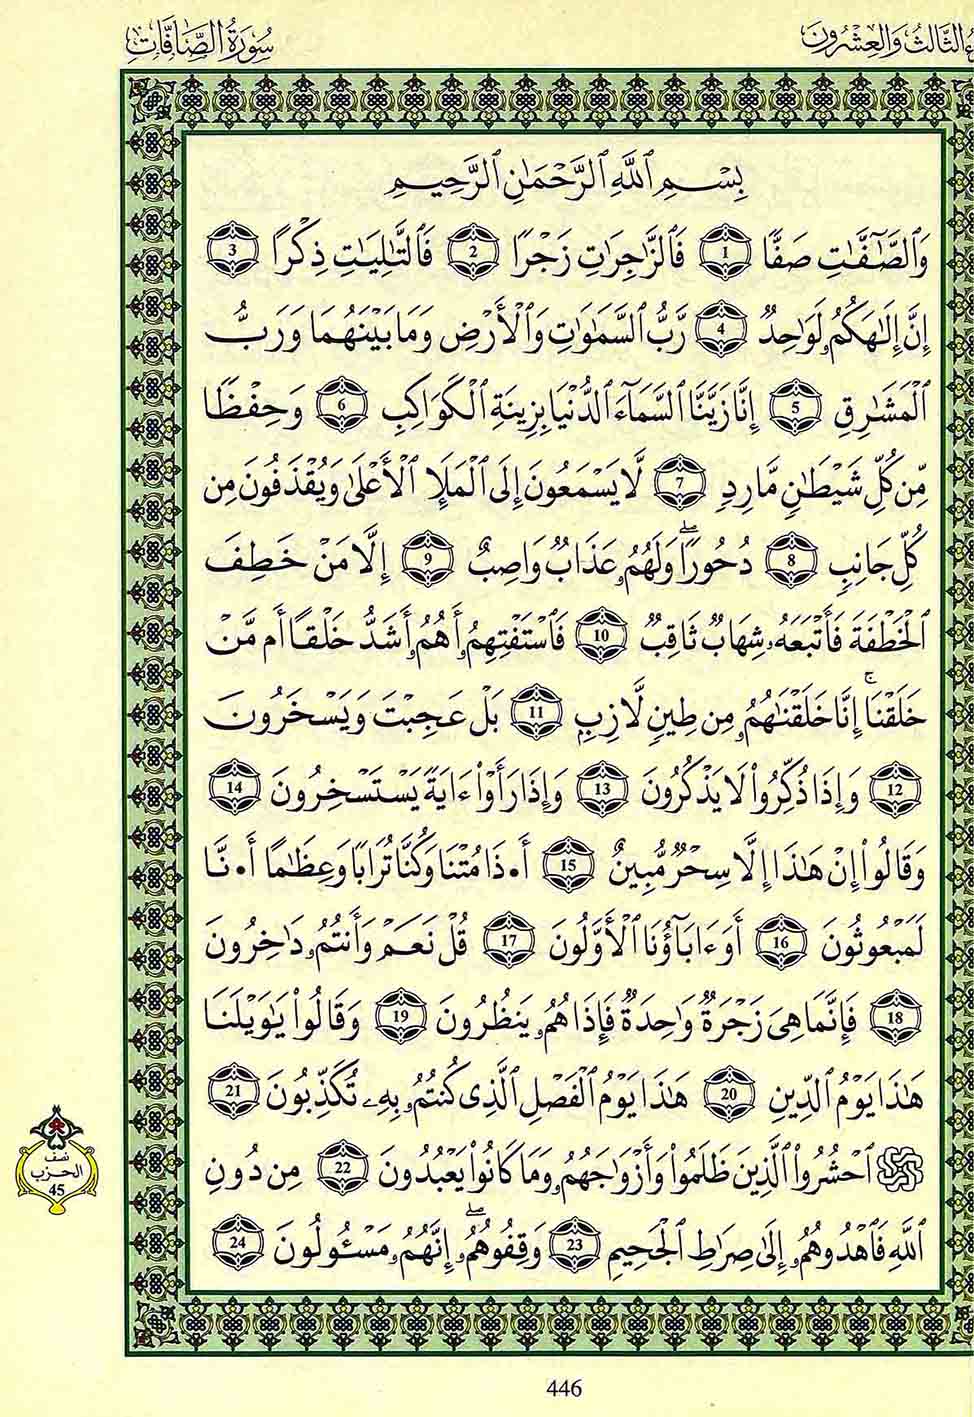 ءُ الثَّالِثُ وَالْعِشْرُونَ
سُورَةُ الصَّافَّاتِ
بِسْمِ ٱللَّهِ ٱلرَّحْمَٰنِ ٱلرَّحِيمِ
وَٱلصَّٰٓفَّٰتِ صَفًّا 1 فَٱلزَّٰجِرَٰتِ زَجْرًا 2 فَٱلتَّٰلِيَٰتِ ذِكْرًا 3
إِنَّ إِلَٰهَكُمُۥ لَوَٰحِدٌ 4 رَّبُّ ٱلسَّمَٰوَٰتِ وَٱلْأَرْضِ وَمَا بَيْنَهُمَا وَرَبُّ
ٱلْمَشَٰرِقِ 5 إِنَّا زَيَّنَّا ٱلسَّمَآءَ ٱلدُّنْيَا بِزِينَةِ ٱلْكَوَاكِبِ 6 وَحِفْظًا
مِّن كُلِّ شَيْطَٰنٍ مَّارِدٍ 7 لَّا يَسْمَعُونَ إِلَى ٱلْمَلَإِ ٱلْأَعْلَىٰ وَيُقْذَفُونَ مِن
كُلِّ جَانِبٍ 8 دُحُورًاۖ وَلَهُمُۥ عَذَابٌ وَاصِبٌ 9 إِلَّا مَنْ خَطِفَ
ٱلْخَطْفَةَ فَأَتْبَعَهُۥ شِهَابٌ ثَاقِبٌ 10 فَٱسْتَفْتِهِمُۥ أَهُمُۥ أَشَدُّ خَلْقًا أَم مَّنْ
خَلَقْنَاۚ إِنَّا خَلَقْنَٰهُمُۥ مِن طِينٍ لَّازِبٍ 11 بَلْ عَجِبْتَ وَيَسْخَرُونَ
12 وَإِذَا ذُكِّرُواْ لَا يَذْكُرُونَ 13 وَإِذَا رَأَوْاْ ءَايَةً يَسْتَسْخِرُونَ 14
وَقَالُواْ إِنْ هَٰذَا إِلَّا سِحْرٌ مُّبِينٌ 15 أَ•ذَا مُتْنَا وَكُنَّا تُرَابًا وَعِظَٰمًا أَ•نَّا
لَمَبْعُوثُونَ 16 أَوَءَابَآؤُنَا ٱلْأَوَّلُونَ 17 قُلْ نَعَمْ وَأَنتُمُۥ دَٰخِرُونَ
18 فَإِنَّمَا هِيَ زَجْرَةٌ وَٰحِدَةٌ فَإِذَا هُمُۥ يَنظُرُونَ 19 وَقَالُواْ يَٰوَيْلَنَا
هَٰذَا يَوْمُ ٱلدِّينِ 20 هَٰذَا يَوْمُ ٱلْفَصْلِ ٱلَّذِي كُنتُمُۥ بِهِۦ تُكَذِّبُونَ 21
ٱحْشُرُواْ ٱلَّذِينَ ظَلَمُواْ وَأَزْوَٰجَهُمُۥ وَمَا كَانُواْ يَعْبُدُونَ 22 مِن دُونِ
نصف
الحزب
45
ٱللَّهِ فَٱهْدُوهُمُۥ إِلَىٰ صِرَٰطِ ٱلْجَحِيمِ 23 وَقِفُوهُمُۥۖ إِنَّهُمُۥ مَسْـُٔولُونَ 24
446